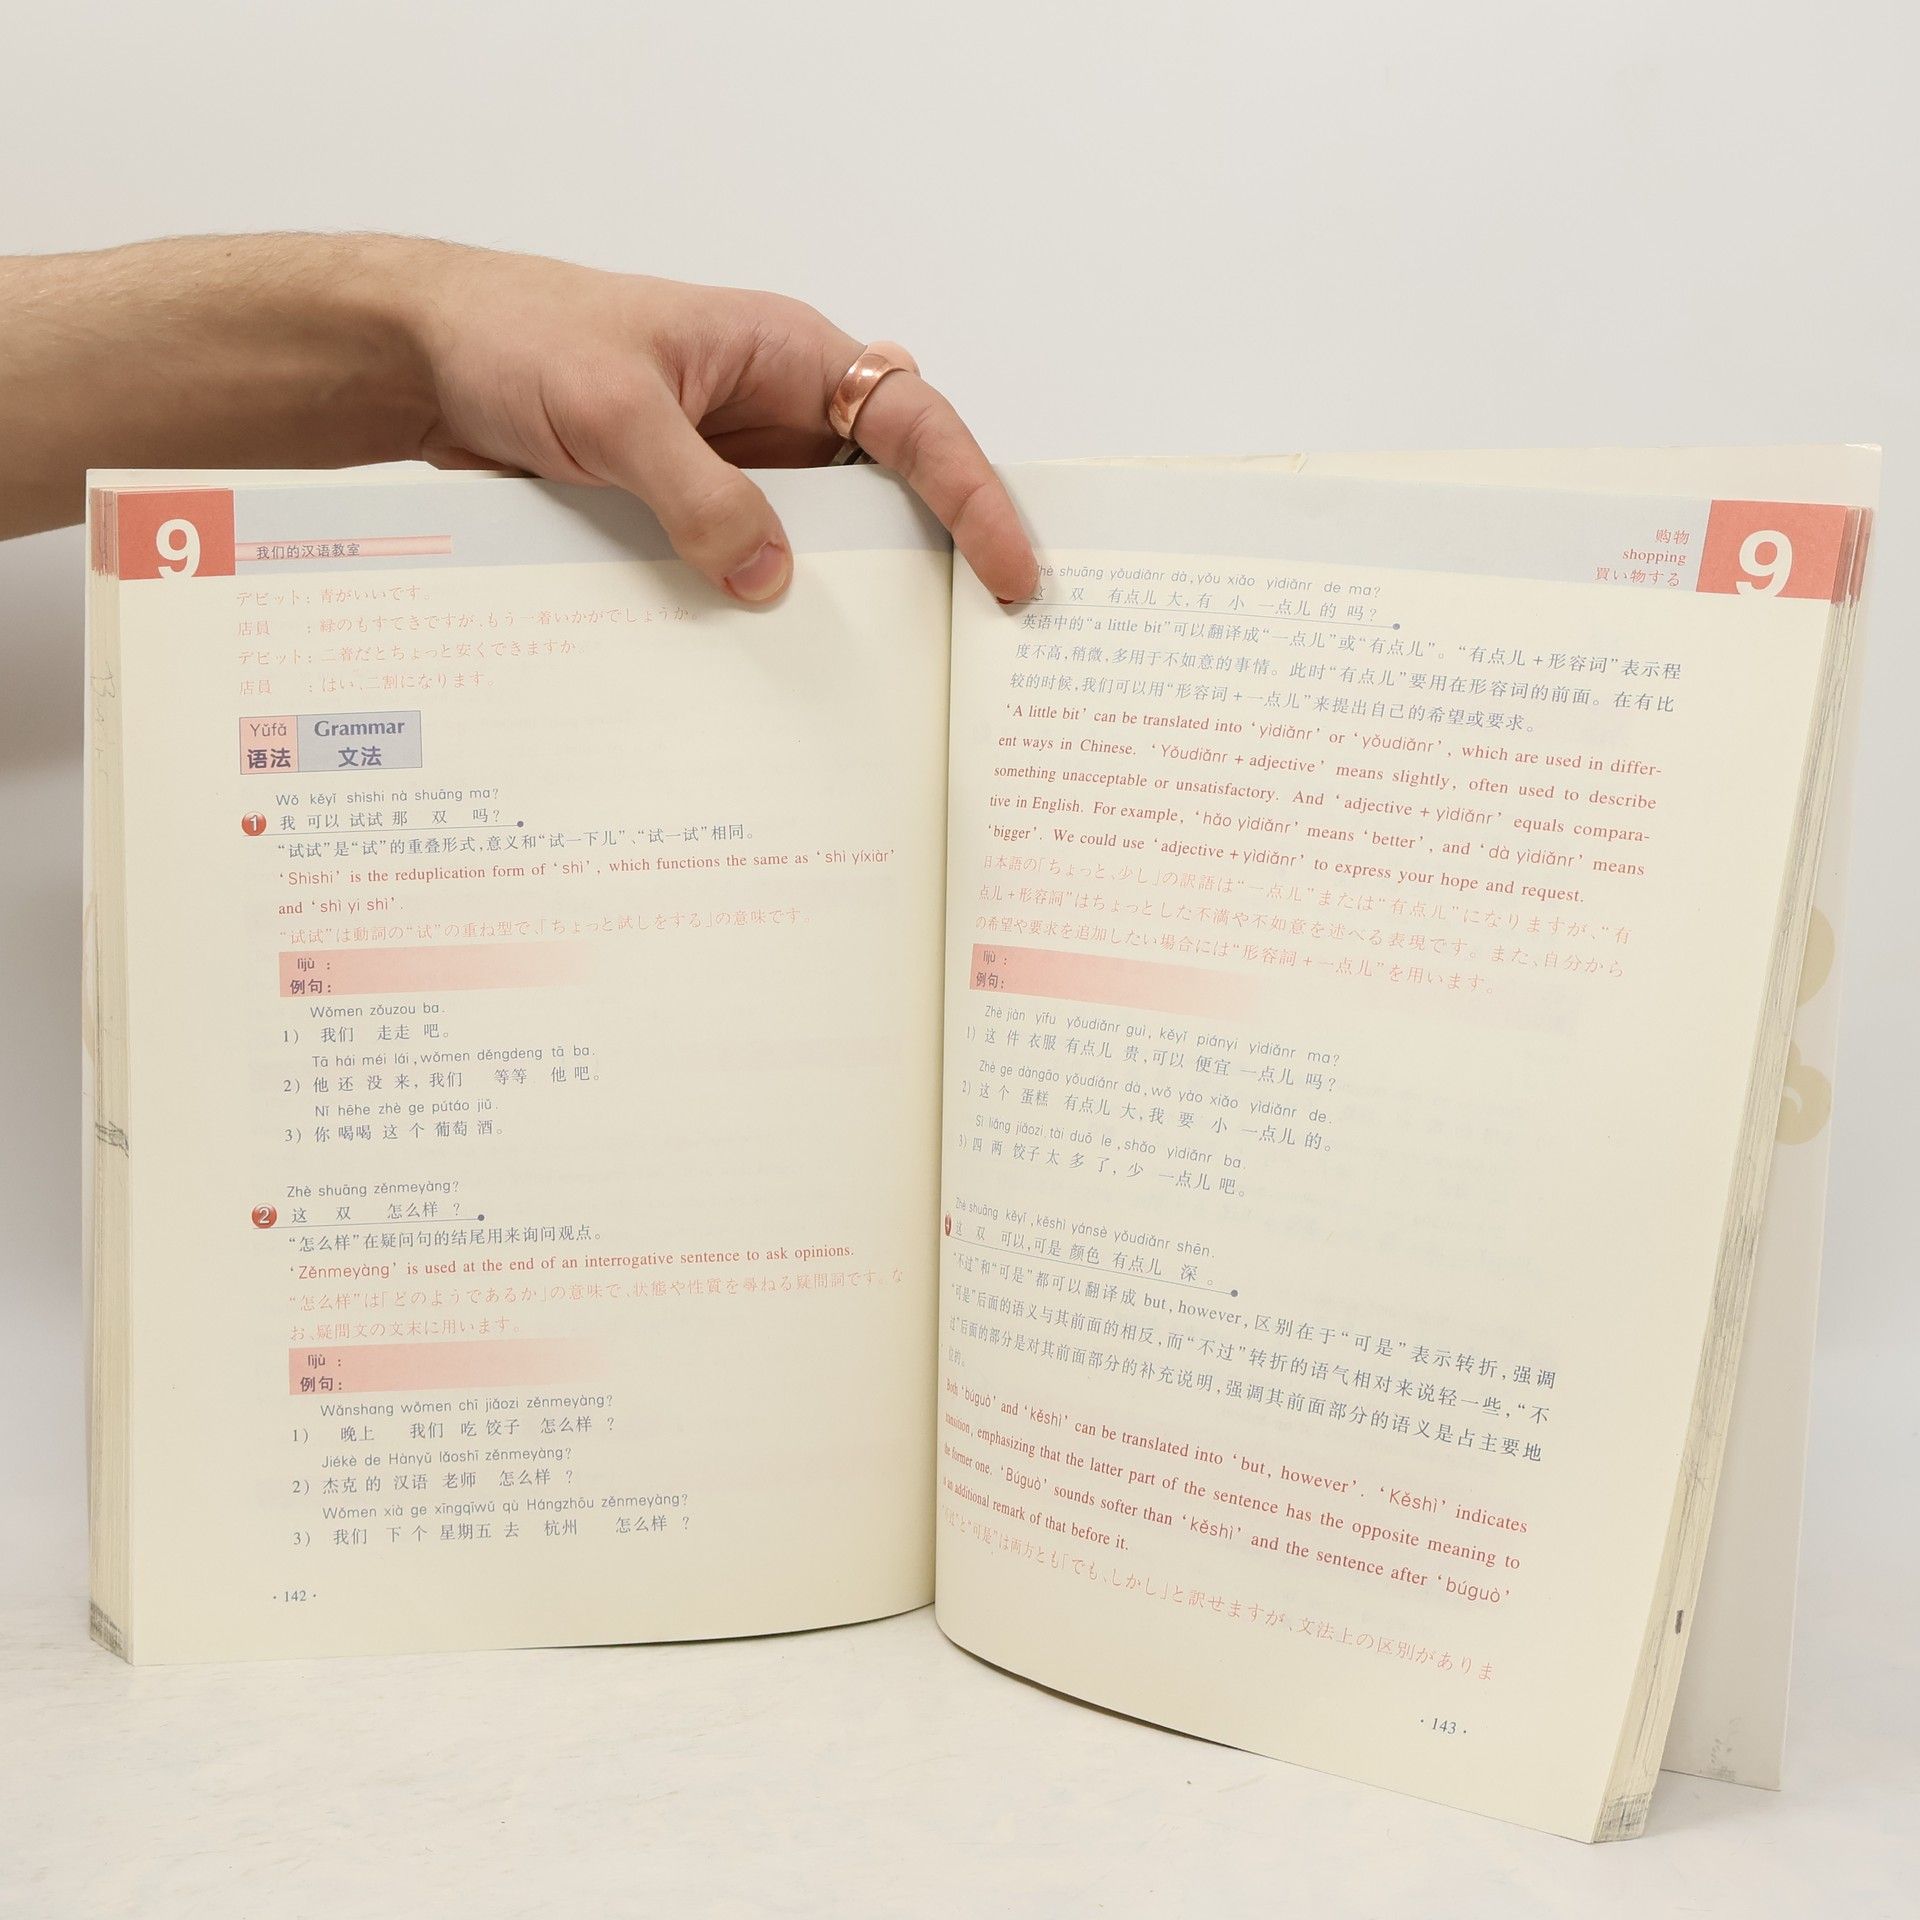 9
我们的汉语教室
デビット: 青がいいです。
店員 : 緑のもすてきですが､もう一着いかがでしょうか。
デビット: 二着だとちょっと安くできますか。
店員 : はい､二割になります。
Yǔfǎ Grammar
语法 文法
Wǒ kěyǐ shìshi nà shuāng ma?
1 我 可以 试试 那 双 吗?
“试试”是“试”的重叠形式,意义和“试一下儿”、“试一试”相同。
‘Shìshi’ is the reduplication form of ‘shì’, which functions the same as ‘shì yíxiàr’
and ‘shì yi shì’.
“试试”は動詞の“试”の重ね型で､「ちょっと試しをする」の意味です。
lìjù :
例句:
Wǒmen zǒuzou ba.
1) 我们 走走 吧。
Tā hái méi lái, wǒmen děngdeng tā ba.
2) 他 还 没 来, 我们 等等 他 吧。
Nǐ hēhe zhè ge pútáo jiǔ.
3) 你 喝喝 这 个 葡萄 酒。
Zhè shuāng zěnmeyàng?
2 这 双 怎么样 ?
“怎么样”在疑问句的结尾用来询问观点。
‘Zěnmeyàng’ is used at the end of an interrogative sentence to ask opinions.
“怎么样”は「どのようであるか」の意味で､状態や性質を尋ねる疑問詞です。な
お､疑問文の文末に用います。
lìjù :
例句:
Wǎnshang wǒmen chī jiǎozi zěnmeyàng?
1) 晚上 我们 吃 饺子 怎么样 ?
Jiékè de Hànyǔ lǎoshī zěnmeyàng?
2) 杰克 的 汉语 老师 怎么样 ?
Wǒmen xià ge xīngqīwǔ qù Hángzhōu zěnmeyàng?
3) 我们 下 个 星期五 去 杭州 怎么样 ?
· 142 ·
购物
shopping
買い物する
9
shuāng yǒudiǎnr dà, yǒu xiǎo yìdiǎnr de ma?
这 双 有点儿 大, 有 小 一点儿 的 吗?
英语中的“a little bit”可以翻译成“一点儿”或“有点儿”。“有点儿+形容词”表示程
度不高,稍微,多用于不如意的事情。此时“有点儿”要用在形容词的前面。在有比
较的时候,我们可以用“形容词+一点儿”来提出自己的希望或要求。
‘A little bit’ can be translated into ‘yìdiǎnr’ or ‘yǒudiǎnr’, which are used in differ-
ent ways in Chinese. ‘Yǒudiǎnr + adjective’ means slightly, often used to describe
something unacceptable or unsatisfactory. And ‘adjective + yìdiǎnr’ equals compara-
tive in English. For example, ‘hǎo yìdiǎnr’ means ‘better’, and ‘dà yìdiǎnr’ means
‘bigger’. We could use ‘adjective + yìdiǎnr’ to express your hope and request.
日本語の「ちょっと､少し」の訳語は“一点儿”または“有点儿”になりますが､“有
点儿+形容詞”はちょっとした不満や不如意を述べる表現です。また､自分から
の希望や要求を追加したい場合には“形容詞+一点儿”を用います。
lìjù :
例句:
Zhè jiàn yīfu yǒudiǎnr guì, kěyǐ piányi yìdiǎnr ma?
1) 这 件 衣服 有点儿 贵, 可以 便宜 一点儿 吗?
Zhè ge dàngāo yǒudiǎnr dà, wǒ yào xiǎo yìdiǎnr de.
2) 这 个 蛋糕 有点儿 大, 我 要 小 一点儿 的。
Sì liǎng jiǎozi tài duō le, shǎo yìdiǎnr ba.
3) 四 两 饺子 太 多 了, 少 一点儿 吧。
Zhè shuāng kěyǐ, kěshì yánsè yǒudiǎnr shēn.
这 双 可以, 可是 颜色 有点儿 深 。
“不过”和“可是”都可以翻译成 but, however, 区别在于“可是”表示转折, 强调
“可是”后面的语义与其前面的相反, 而“不过”转折的语气相对来说轻一些, “不
过”后面的部分是对其前面部分的补充说明, 强调其前面部分的语义是占主要地
位的。
Both ‘búguò’ and ‘kěshì’ can be translated into ‘but, however’. ‘Kěshì’ indicates
transition, emphasizing that the latter part of the sentence has the opposite meaning to
the former one. ‘Búguò’ sounds softer than ‘kěshì’ and the sentence after ‘búguò’
is an additional remark of that before it.
“不过”と“可是”は両方とも「でも､しかし」と訳せますが､文法上の区別がありま
· 143 ·